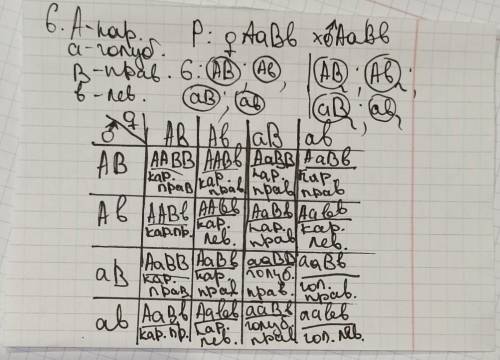 6. А-кар. Р: ♀ АаВв × ♂ АаВв
а-голуб.
В-прав. G: АВ; Ав; АВ; Ав;
в-лев. аВ; ав аВ; ав
♂ ♀ АВ Ав аВ ав
АВ ААВВ ААВв АаВВ АаВв
кар. кар. кар. кар.
прав прав прав прав
Ав ААВв ААвв АаВв Аавв
кар.пр. кар. кар. кар.
лев. прав лев.
аВ АаВВ АаВв ааВВ ааВв
кар. кар. голуб. гол.
прав прав прав. прав.
ав АаВв Аавв ааВв аавв
кар. пр. кар. голуб. гол. лев.
лев. прав